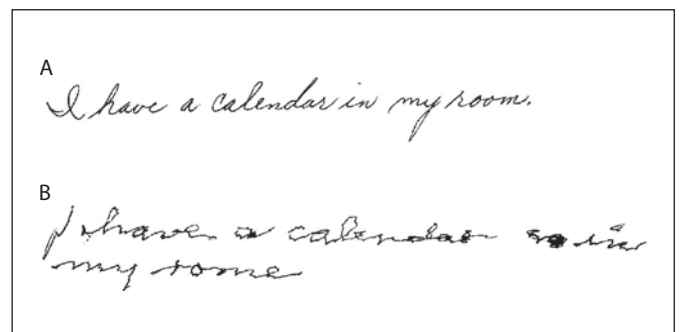 A
I have a calendar in my room.
B
I have a calendar in
my rome